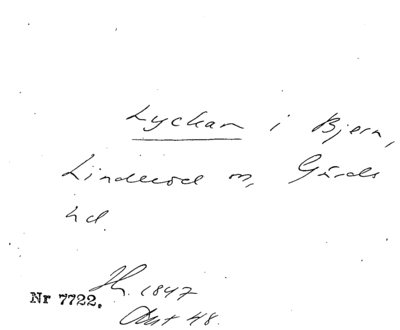 Lyckan i Bjern,
Linderöd sn, Gärds
hd.
H. 1847
Nr 7722.
48.